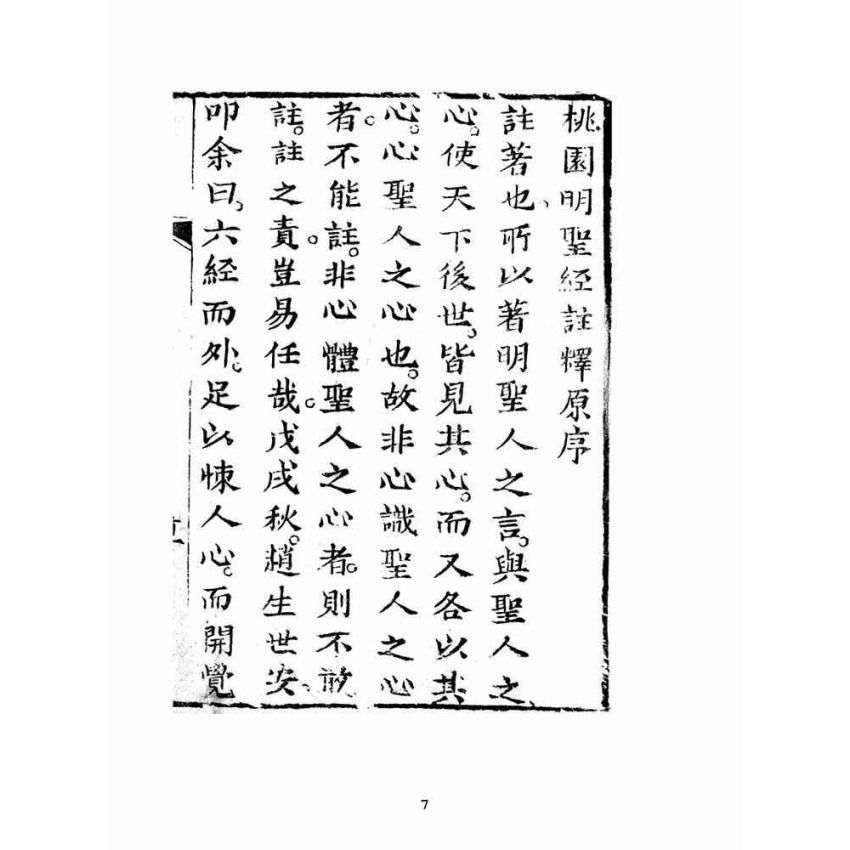 桃園明聖經註釋原序
註著也。所以著明聖人之言。與聖人之
心。使天下後世。皆見其心。而又各以其
心。心聖人之心也。故非心識聖人之心
者。不能註。非心體聖人之心者。則不敢
註。註之責。豈易任哉。戊戌秋。趙生世安。
叩余曰。六經而外。足以悚人心。而開覺
7